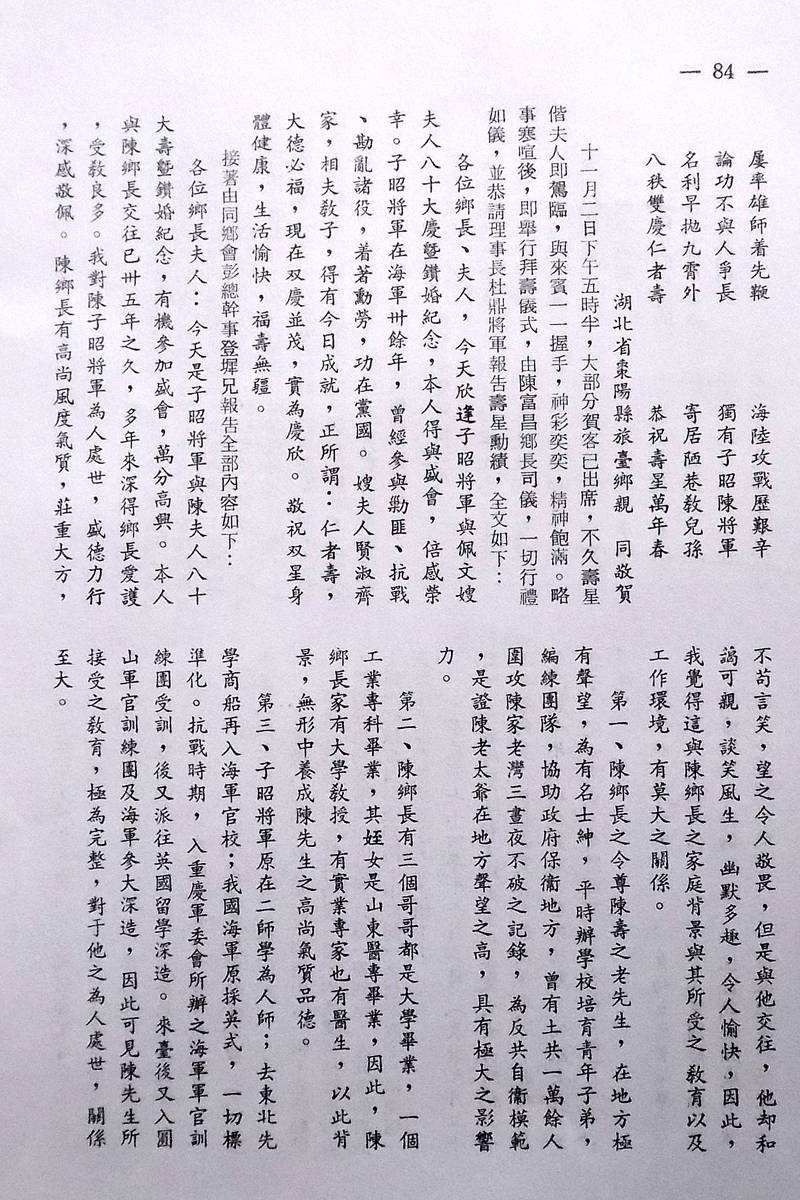 — 84 —
屢率雄師着先鞭　海陸攻戰歷艱辛
論功不與人爭長　獨有子昭陳將軍
名利早拋九霄外　寄居陋巷敎兒孫
八秩雙慶仁者壽　恭祝壽星萬年春
湖北省棗陽縣旅臺鄉親　同敬賀
十一月二日下午五時半，大部分賀客已出席，不久壽星
偕夫人即駕臨，與來賓一一握手，神彩奕奕，精神飽滿。略
事寒喧後，即舉行拜壽儀式，由陳富昌鄉長司儀，一切行禮
如儀，並恭請理事長杜鼎將軍報告壽星勳績，全文如下：
各位鄉長、夫人，今天欣逢子昭將軍與佩文嫂
夫人八十大慶暨鑽婚紀念，本人得與盛會，倍感榮
幸。子昭將軍在海軍卅餘年，曾經參與勦匪、抗戰
、勘亂諸役，着著勳勞，功在黨國。嫂夫人賢淑齊
家，相夫敎子，得有今日成就，正所謂：仁者壽，
大德必福，現在双慶並茂，實為慶欣。敬祝双星身
體健康，生活愉快，福壽無疆。
接著由同鄉會彭總幹事登墀兄報告全部內容如下：
各位鄉長夫人：今天是子昭將軍與陳夫人八十
大壽暨鑽婚紀念，有機參加盛會，萬分高興。本人
與陳鄉長交往已卅五年之久，多年來深得鄉長愛護
，受敎良多。我對陳子昭將軍為人處世，盛德力行
，深感敬佩。陳鄉長有高尚風度氣質，莊重大方，
不苟言笑，望之令人敬畏，但是與他交往，他却和
謁可親，談笑風生，幽默多趣，令人愉快，因此，
我覺得這與陳鄉長之家庭背景與其所受之敎育以及
工作環境，有莫大之關係。
第一、陳鄉長之令尊陳壽之老先生，在地方極
有聲望，為有名士紳，平時辦學校培育青年子弟，
編練團隊，協助政府保衞地方，曾有土共一萬餘人
圍攻陳家老灣三晝夜不破之記錄，為反共自衞模範
，是證陳老太爺在地方聲望之高，具有極大之影響
力。
第二、陳鄉長有三個哥哥都是大學畢業，一個
工業專科畢業，其姪女是山東醫專畢業，因此，陳
鄉長家有大學敎授，有實業專家也有醫生，以此背
景，無形中養成陳先生之高尚氣質品德。
第三、子昭將軍原在二師學為人師；去東北先
學商船再入海軍官校；我國海軍原採英式，一切標
準化。抗戰時期，入重慶軍委會所辦之海軍軍官訓
練團受訓，後又派往英國留學深造。來臺後又入圓
山軍官訓練團及海軍參大深造，因此可見陳先生所
接受之敎育，極為完整，對于他之為人處世，關係
至大。